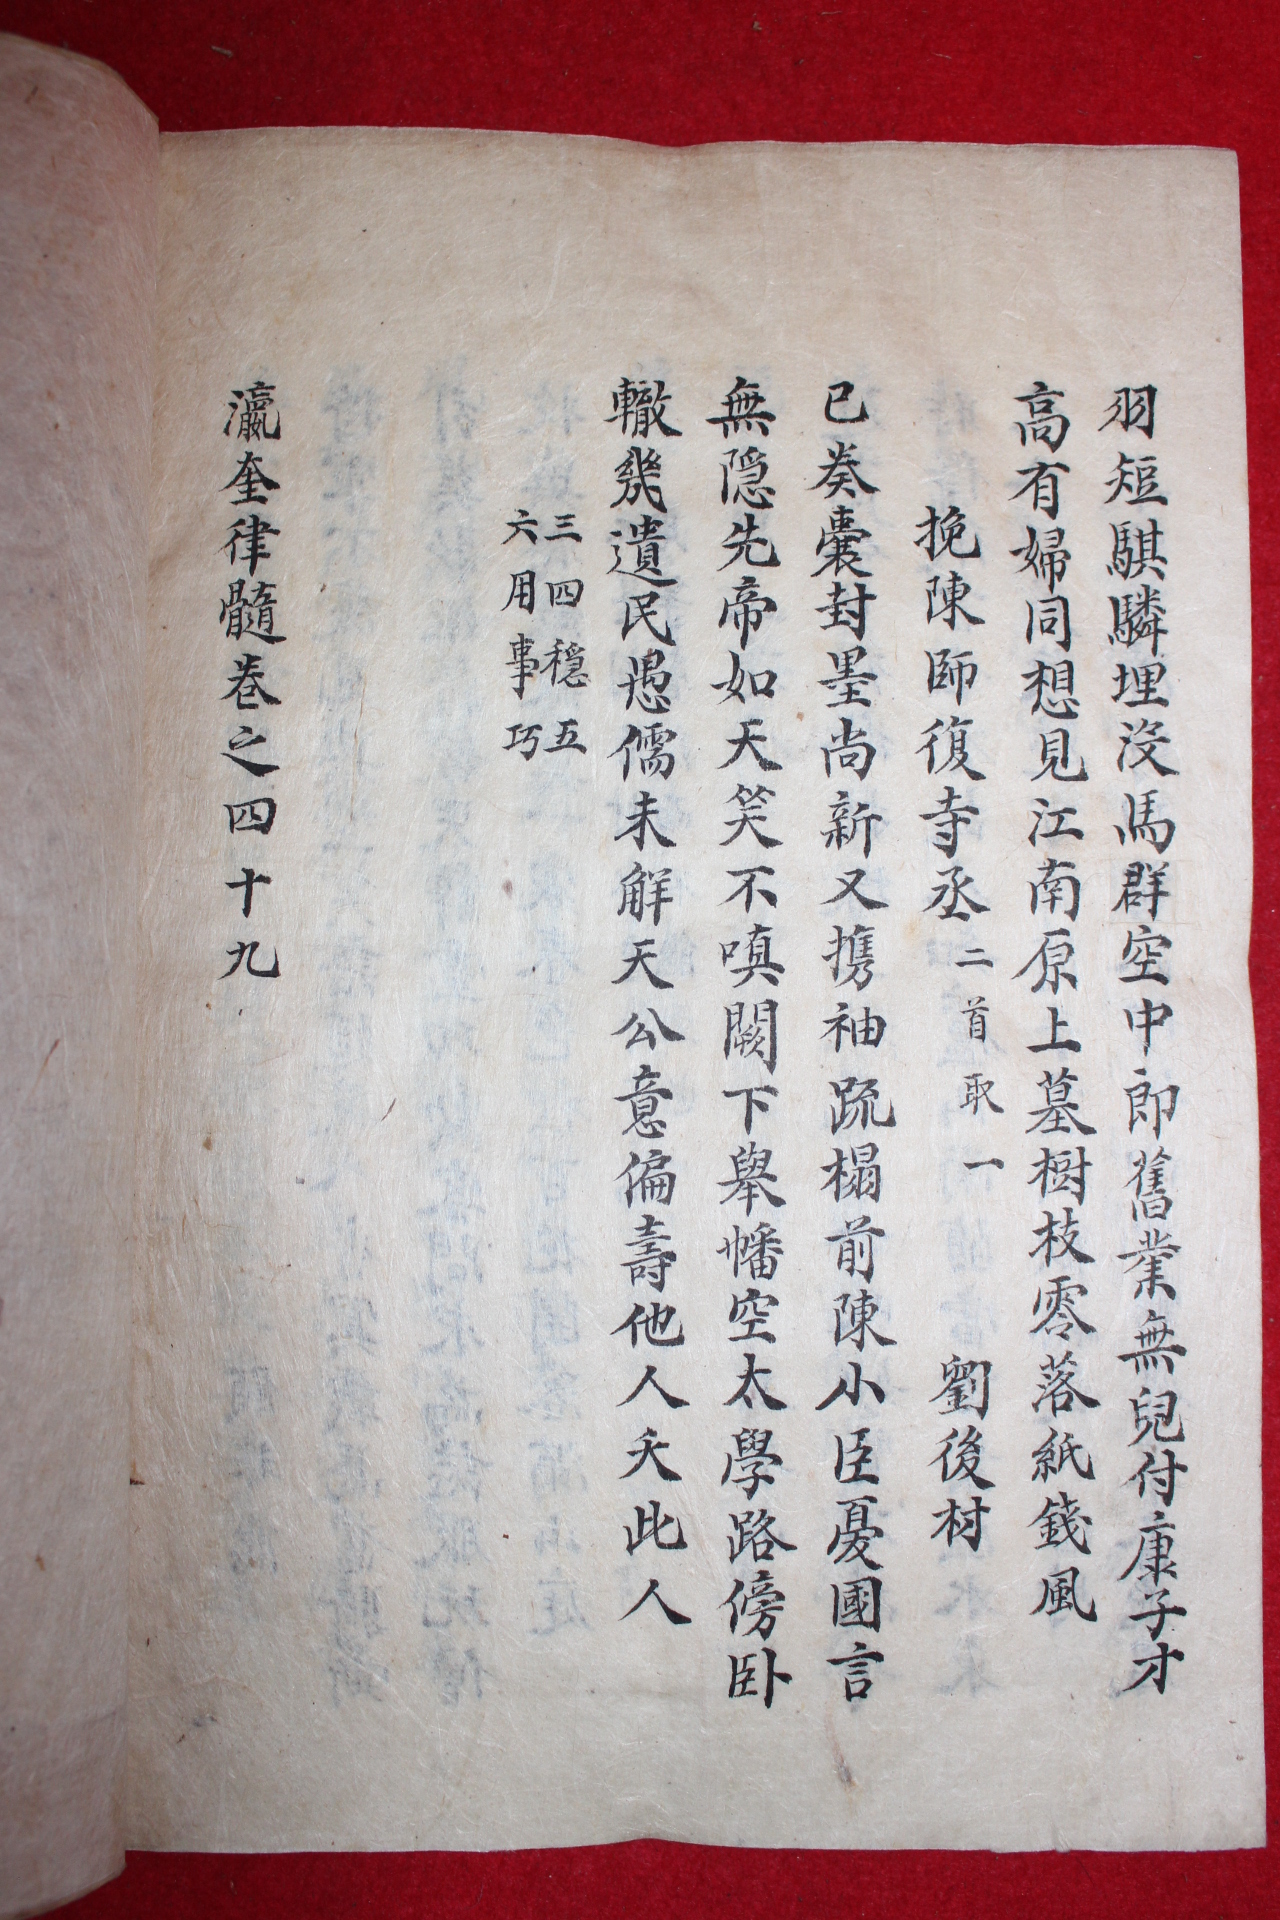 羽短騏驎埋沒馬群空中郎舊業無兒付康子才
高有婦同想見江南原上墓樹枝零落紙錢風
挽陳師復寺丞 二首取一 劉後村
已奏囊封墨尚新又携袖疏榻前陳小臣憂國言
無隱先帝如天笑不嗔闕下舉幡空太學路傍臥
轍幾遺民愚儒未解天公意偏壽他人夭此人
三四穩五
六用事巧
瀛奎律髓卷之四十九